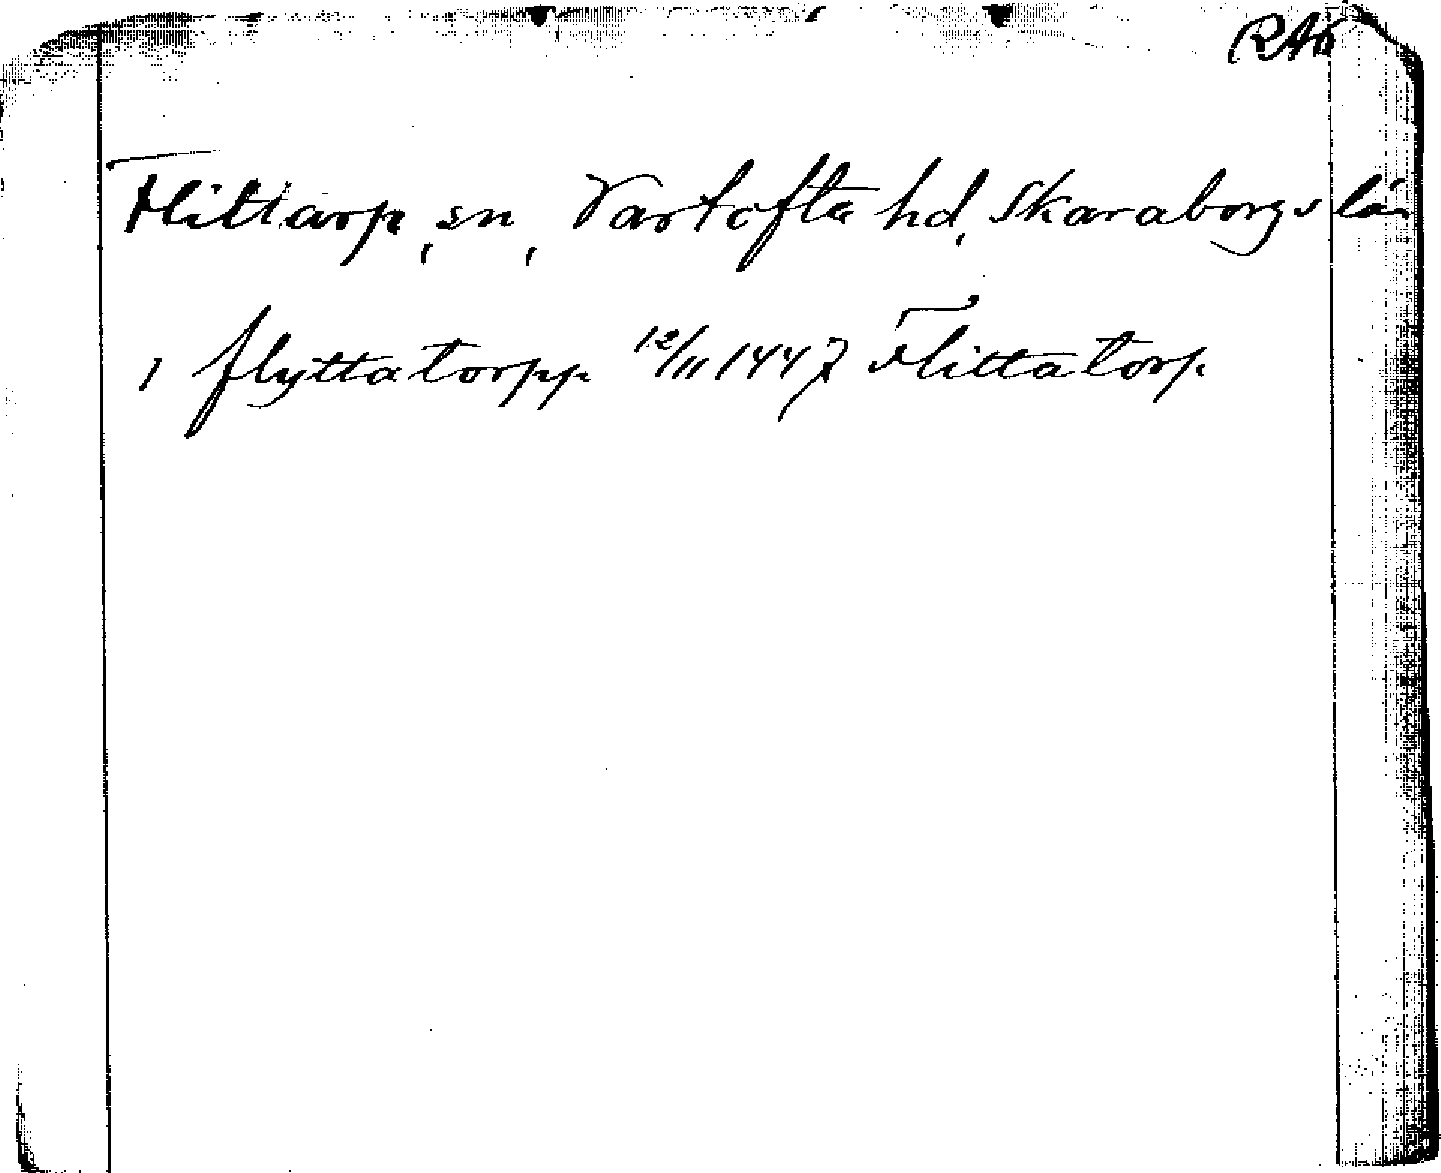 RAÖ
Flittarp, sn, Vartofta hd, Skaraborgs län
i flyttatorpp 12/11 1447 Flittatorp